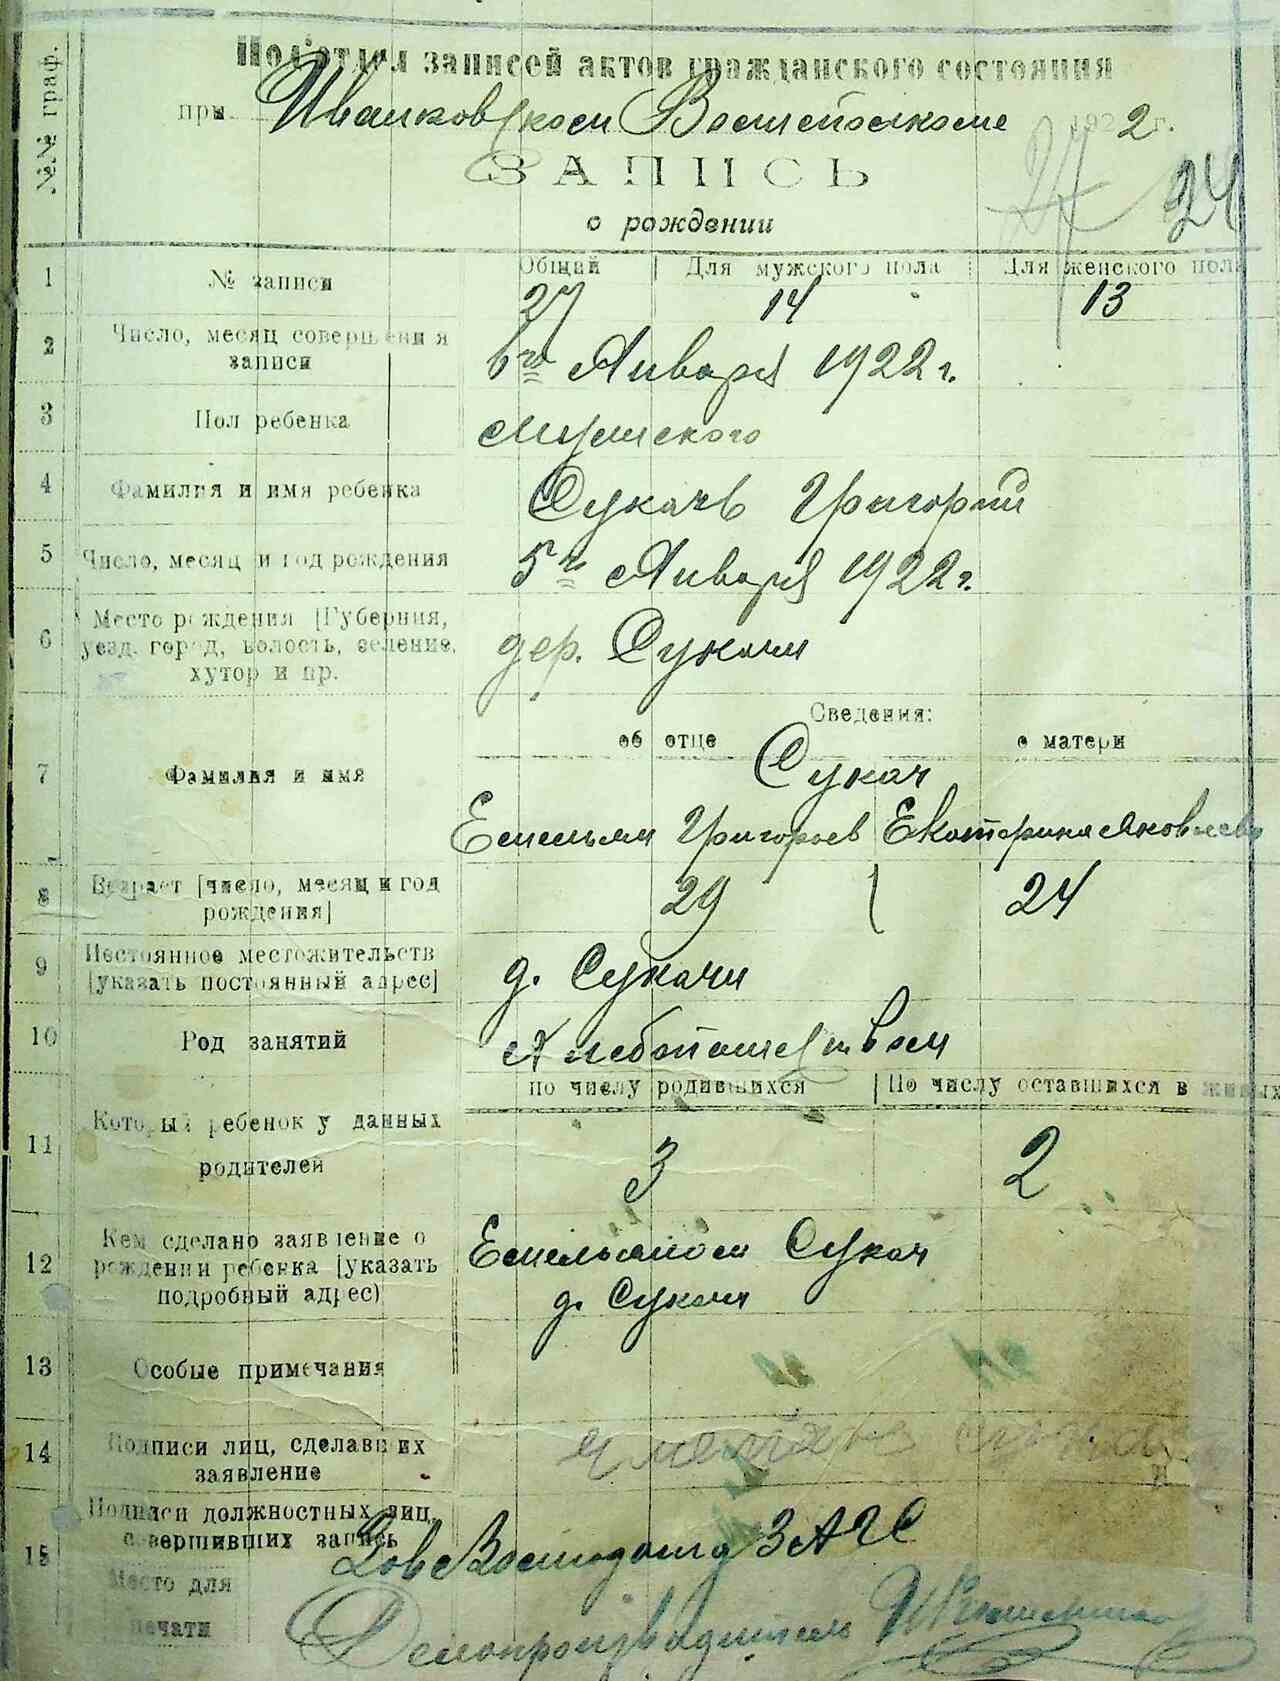 №№ граф.
Подотдел записей актов гражданского состояния
при Иванковском Волисполкоме 1922 г.
ЗАПИСЬ
24
о рождении
Общий Для мужского пола Для женского пола
1 № записи 27 14 13
2 Число, месяц совершения записи 6го Января 1922 г.
3 Пол ребенка Мужского
4 Фамилия и имя ребенка Сукачь Григорий
5 Число, месяц и год рождения 5го Января 1922 г.
6 Место рождения [Губерния, уезд, город, волость, селение, хутор и пр. дер. Сукачи
Сведения:
об отце о матери
7 Фамилия и имя Сукач
Емельян Григорьев Екатерина Яковлева
8 Возраст [число, месяц и год рождения] 29 24
9 Постоянное местожительств [указать постоянный адрес] д. Сукачи
10 Род занятий Хлебопашеством
по числу родившихся По числу оставшихся в живых
11 Который ребенок у данных родителей 3 2
12 Кем сделано заявление о рождении ребенка [указать подробный адрес) Емельяном Сукач
д. Сукачи
13 Особые примечания
14 Подписи лиц, сделавших заявление
15 Подписи должностных лиц, совершивших запись ЗАГС
Место для печати
Делопроизводитель